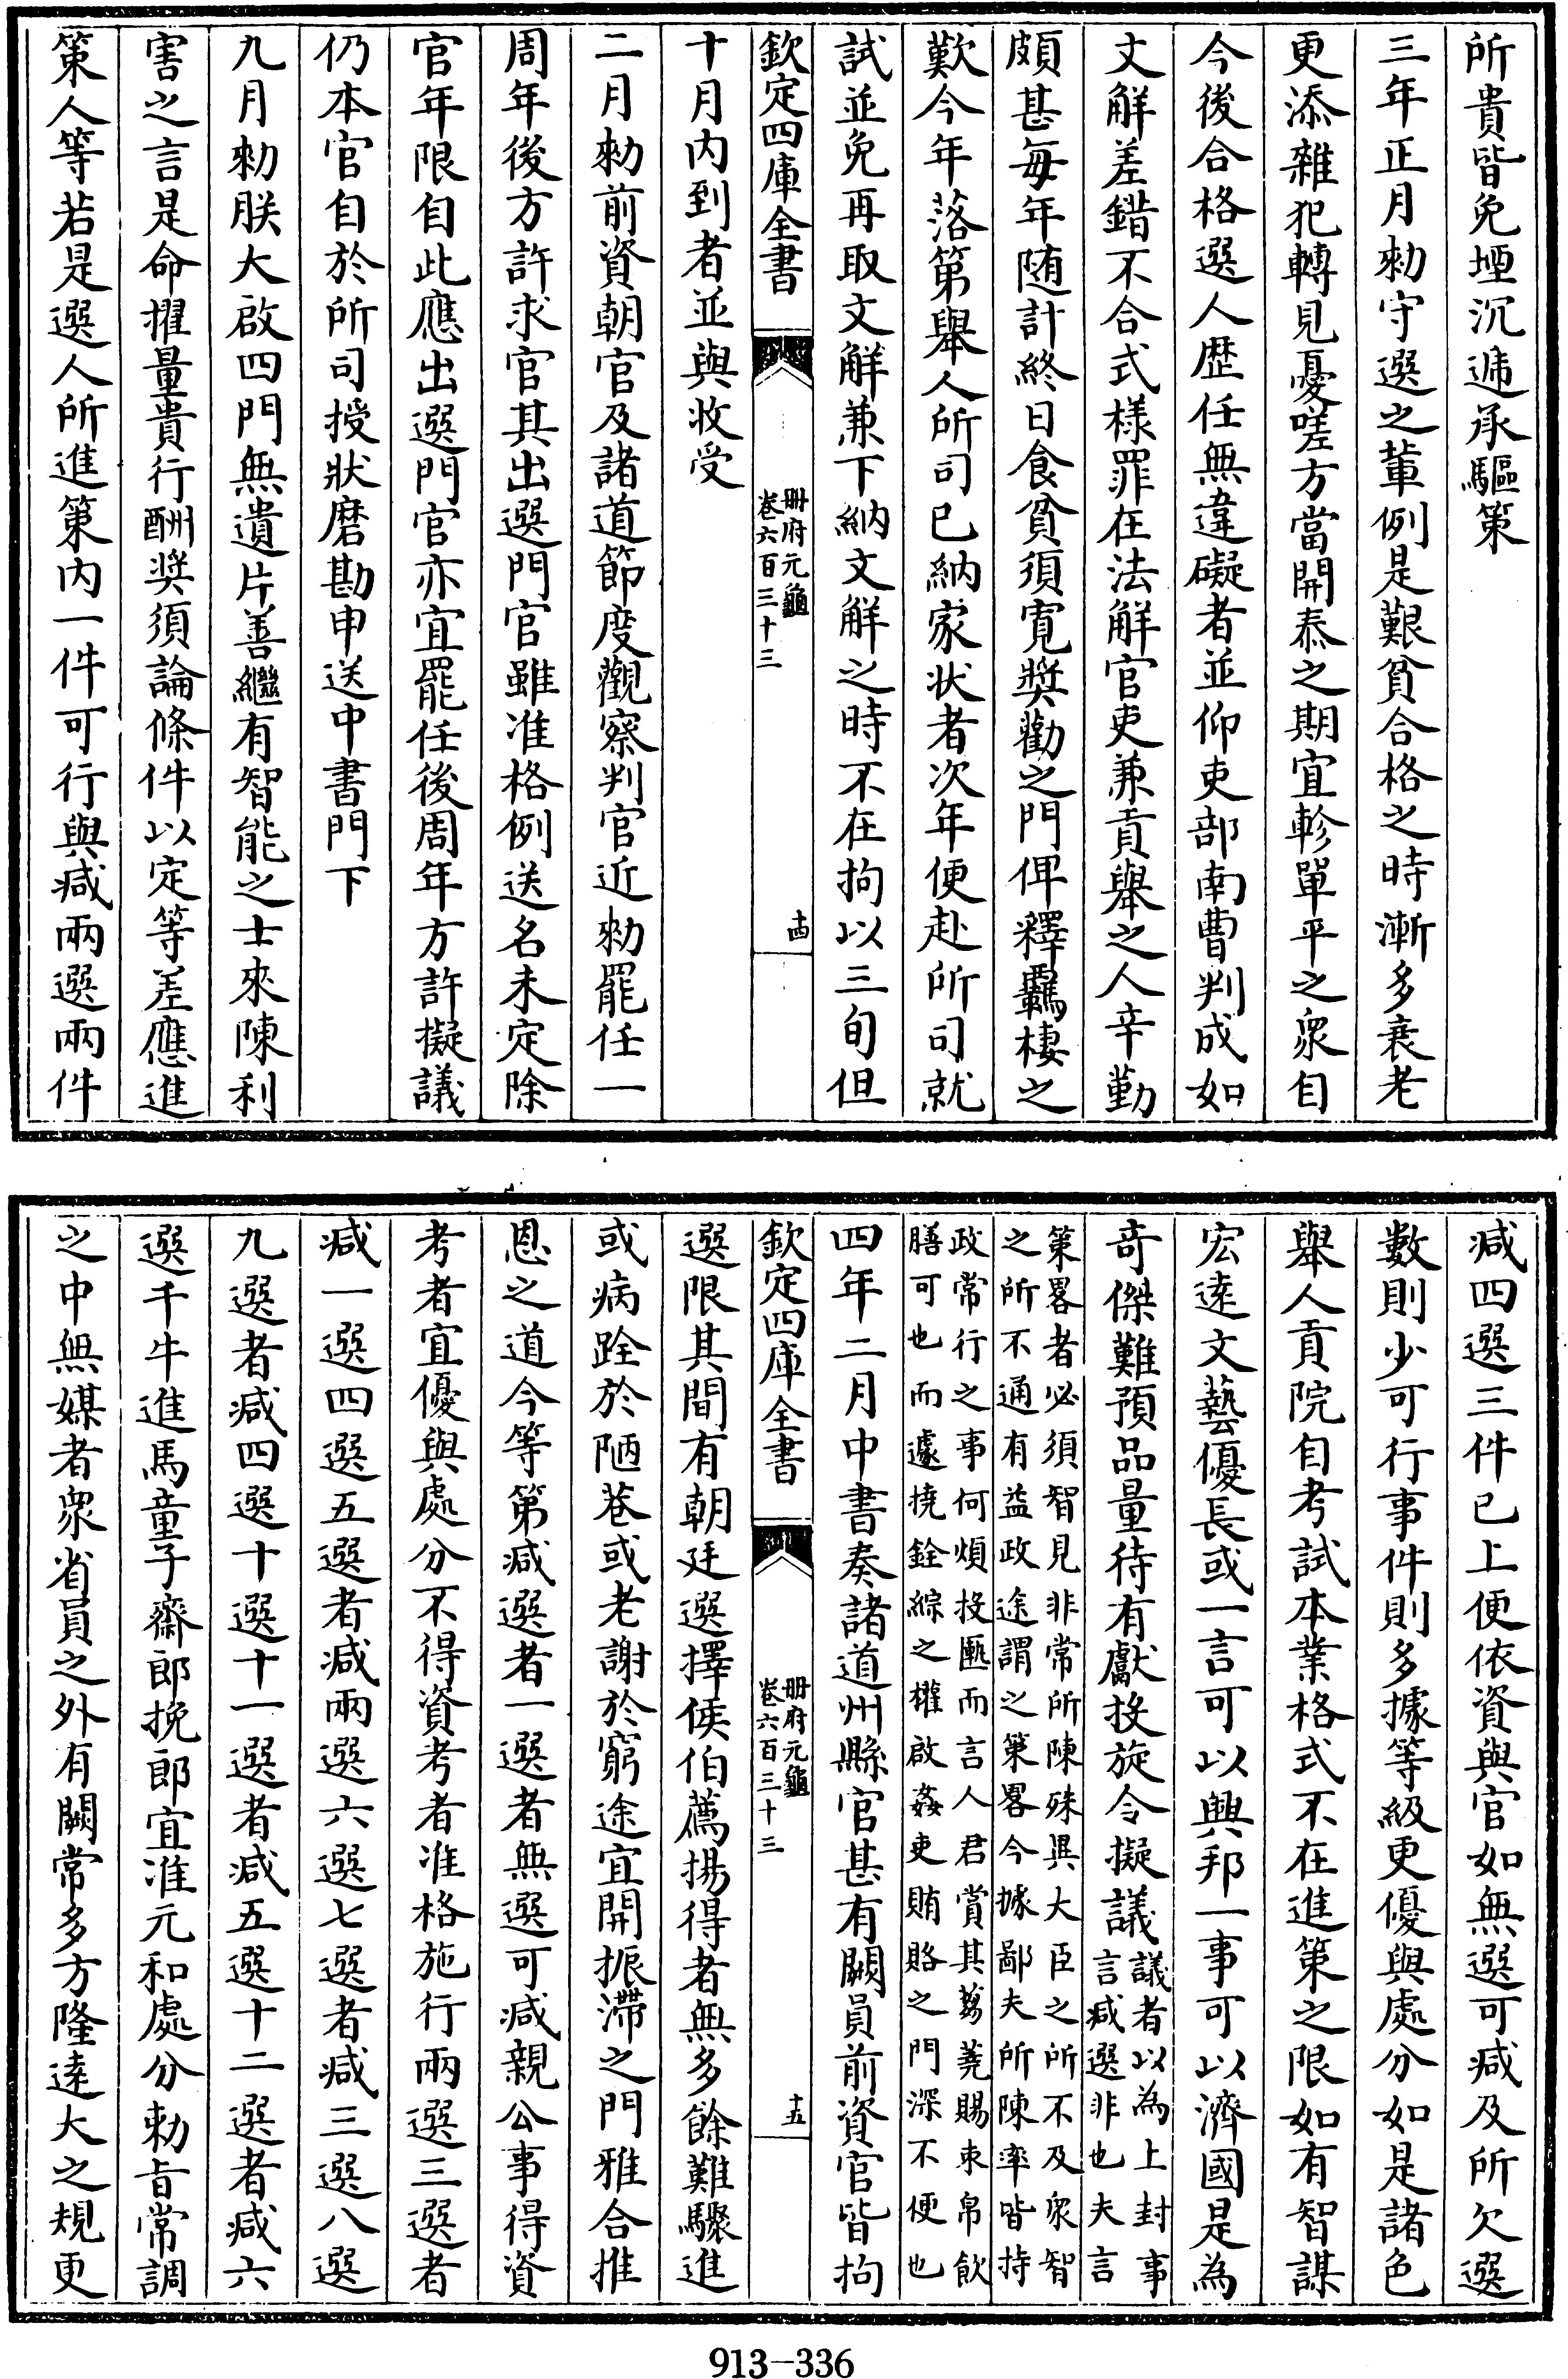 所貴皆免堙沉遞承驅策
三年正月勑守選之輩例是艱貧合格之時漸多衰老
更添雜犯轉見憂嗟方當開泰之期宜軫單平之衆自
今後合格選人歴任無違礙者並仰吏部南曹判成如
文解差錯不合式樣罪在法解官吏兼貢舉之人辛勤
頗甚每年随計終日食貧須寛奬勸之門俾釋羈棲之
歎今年落第舉人所司已納家状者次年便赴所司就
試並免再取文解兼下納文解之時不在拘以三旬但
欽定四庫全書
冊府元龜
卷六百三十三
十四
十月内到者並與收受
二月勑前資朝官及諸道節度觀察判官近勑罷任一
周年後方許求官其出選門官雖准格例送名未定除
官年限自此應出選門官亦宜罷任後周年方許擬議
仍本官自於所司授狀磨勘申送中書門下
九月勑朕大啟四門無遺片善繼有智能之士來陳利
害之言是命擢量貴行酬奬須論條件以定等差應進
策人等若是選人所進策内一件可行與减兩選兩件
减四選三件已上便依資與官如無選可减及所欠選
數則少可行事件則多據等級更優與處分如是諸色
舉人貢院自考試本業格式不在進策之限如有智謀
宏逹文藝優長或一言可以興邦一事可以濟國是為
奇傑難預品量待有獻投旋令擬議議者以為上封事
言减選非也夫言
策畧者必須智見非常所陳殊異大臣之所不及衆智
之所不通有益政途謂之策畧今據鄙夫所陳率皆持
政常行之事何煩投匭而言人君賞其芻蕘賜束帛飲
膳可也而遽撓銓綜之權啟姦吏賄賂之門深不便也
四年二月中書奏諸道州縣官甚有闕員前資官皆拘
欽定四庫全書
冊府元龜
卷六百三十三
十五
選限其間有朝廷選擇侯伯薦揚得者無多餘難驟進
或病跧於陋巷或老謝於窮途宜開振滯之門雅合推
恩之道今等第减選者一選者無選可减親公事得資
考者宜優與處分不得資考者准格施行兩選三選者
减一選四選五選者减兩選六選七選者减三選八選
九選者减四選十選十一選者减五選十二選者减六
選千牛進馬童子齋郎挽郎宜准元和處分勅㫖常調
之中無媒者衆省員之外有闕常多方隆逹大之規更
913-336